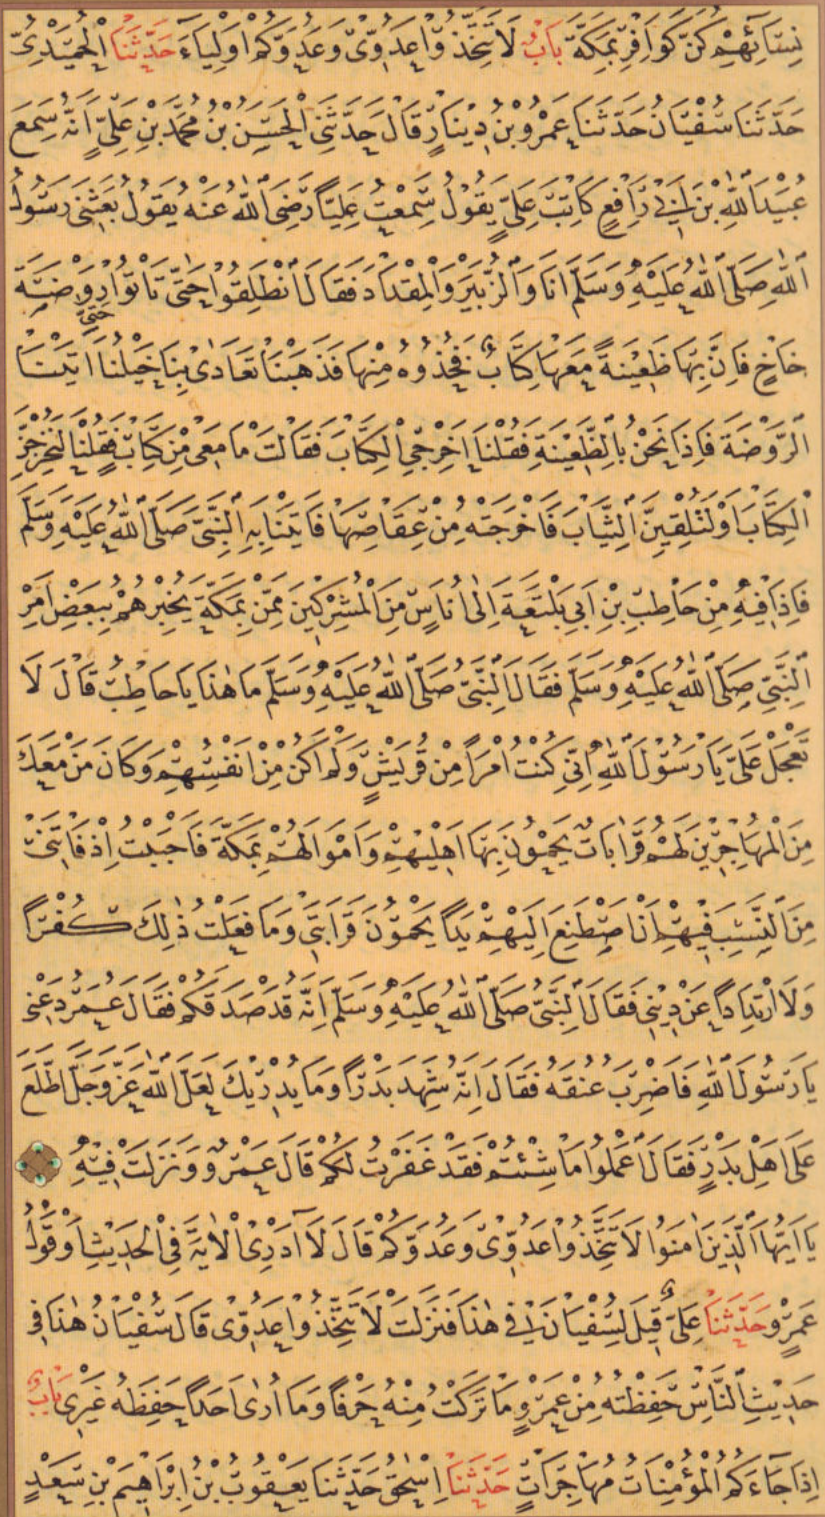 نِسَائِهِمْ كُنَّ كَوَافِرَ بِمَكَّةَ بَابُ لَا تَتَّخِذُوا عَدُوِّى وَعَدُوَّكُمْ اَوْلِيَاءَ حَدَّثَنَا الْحُمَيْدِىُّ
حَدَّثَنَا سُفْيَانُ حَدَّثَنَا عَمْرُو بْنُ دِينَارٍ قَالَ حَدَّثَنِى الْحَسَنُ بْنُ مُحَمَّدِ بْنِ عَلِىٍّ اَنَّهُ سَمِعَ
عُبَيْدَ اللّٰهِ بْنَ اَبِى رَافِعٍ كَاتِبَ عَلِىٍّ يَقُولُ سَمِعْتُ عَلِيًّا رَضِىَ اللّٰهُ عَنْهُ يَقُولُ بَعَثَنِى رَسُولُ
اللّٰهِ صَلَّى اللّٰهُ عَلَيْهِ وَسَلَّمَ اَنَا وَالزُّبَيْرَ وَالْمِقْدَادَ فَقَالَ انْطَلِقُوا حَتّٰى تَأْتُوا رَوْضَةَ
حَتَّى
خَاخٍ فَاِنَّ بِهَا ظَعِينَةً مَعَهَا كِتَابٌ فَخُذُوهُ مِنْهَا فَذَهَبْنَا تَعَادٰى بِنَا خَيْلُنَا اَتَيْنَا
الرَّوْضَةَ فَاِذَا نَحْنُ بِالظَّعِينَةِ فَقُلْنَا اَخْرِجِى الْكِتَابَ فَقَالَتْ مَا مَعِى مِنْ كِتَابٍ فَقُلْنَا لَتُخْرِجِنَّ
الْكِتَابَ اَوْ لَنُلْقِيَنَّ الثِّيَابَ فَاَخْرَجَتْهُ مِنْ عِقَاصِهَا فَاَتَيْنَا بِهِ النَّبِىَّ صَلَّى اللّٰهُ عَلَيْهِ وَسَلَّمَ
فَاِذَا فِيهِ مِنْ حَاطِبِ بْنِ اَبِى بَلْتَعَةَ اِلٰى اُنَاسٍ مِنَ الْمُشْرِكِينَ مِمَّنْ بِمَكَّةَ يُخْبِرُهُمْ بِبَعْضِ اَمْرِ
النَّبِىِّ صَلَّى اللّٰهُ عَلَيْهِ وَسَلَّمَ فَقَالَ النَّبِىُّ صَلَّى اللّٰهُ عَلَيْهِ وَسَلَّمَ مَا هٰذَا يَا حَاطِبُ قَالَ لَا
تَعْجَلْ عَلَىَّ يَا رَسُولَ اللّٰهِ اِنِّى كُنْتُ امْرَأً مِنْ قُرَيْشٍ وَلَمْ اَكُنْ مِنْ اَنْفُسِهِمْ وَكَانَ مَنْ مَعَكَ
مِنَ الْمُهَاجِرِينَ لَهُمْ قَرَابَاتٌ يَحْمُونَ بِهَا اَهْلِيهِمْ وَاَمْوَالَهُمْ بِمَكَّةَ فَاَحْبَبْتُ اِذْ فَاتَنِى
مِنَ النَّسَبِ فِيهِمْ اَنْ اَصْطَنِعَ اِلَيْهِمْ يَدًا يَحْمُونَ قَرَابَتِى وَمَا فَعَلْتُ ذٰلِكَ كُفْرًا
وَلَا ارْتِدَادًا عَنْ دِينِى فَقَالَ النَّبِىُّ صَلَّى اللّٰهُ عَلَيْهِ وَسَلَّمَ اِنَّهُ قَدْ صَدَقَكُمْ فَقَالَ عُمَرُ دَعْنِى
يَا رَسُولَ اللّٰهِ فَاَضْرِبَ عُنُقَهُ فَقَالَ اِنَّهُ شَهِدَ بَدْرًا وَمَا يُدْرِيكَ لَعَلَّ اللّٰهَ عَزَّ وَجَلَّ اطَّلَعَ
عَلٰى اَهْلِ بَدْرٍ فَقَالَ اعْمَلُوا مَا شِئْتُمْ فَقَدْ غَفَرْتُ لَكُمْ قَالَ عَمْرٌو وَنَزَلَتْ فِيهِ
يَا اَيُّهَا الَّذِينَ اٰمَنُوا لَا تَتَّخِذُوا عَدُوِّى وَعَدُوَّكُمْ قَالَ لَا اَدْرِى الْاٰيَةَ فِى الْحَدِيثِ اَوْ قَوْلُ
عَمْرٍو حَدَّثَنَا عَلِىٌّ قِيلَ لِسُفْيَانَ فِى هٰذَا فَنَزَلَتْ لَا تَتَّخِذُوا عَدُوِّى قَالَ سُفْيَانُ هٰذَا فِى
حَدِيثِ النَّاسِ حَفِظْتُهُ مِنْ عَمْرٍو مَا تَرَكْتُ مِنْهُ حَرْفًا وَمَا اُرٰى اَحَدًا حَفِظَهُ غَيْرِى بَابٌ
اِذَا جَاءَكُمُ الْمُؤْمِنَاتُ مُهَاجِرَاتٍ حَدَّثَنَا اِسْحٰقُ حَدَّثَنَا يَعْقُوبُ بْنُ اِبْرَاهِيمَ بْنِ سَعْدٍ